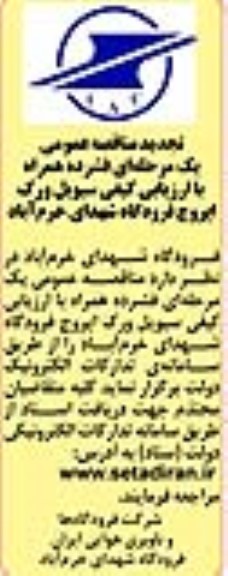 I A C
تجدید مناقصه عمومی
یک مرحله‌ای فشرده همراه
با ارزیابی کیفی سیویل ورک
اپروچ فرودگاه شهدای خرم‌آباد
فــرودگاه شــهدای خرم‌آباد در
نظــر دارد مناقصــه عمومی یک
مرحله‌ای فشرده همراه با ارزیابی
کیفی سیویل ورک اپروچ فرودگاه
شــهدای خرم‌آبــاد را از طریق
ســامانه‌ی تدارکات الکترونیک
دولت برگزار نماید کلیه متقاضیان
محترم جهت دریافت اســناد از
طریق سامانه تدارکات الکترونیکی
دولت (ستاد) به آدرس:
www.setadiran.ir
مراجعه فرمایند.
شرکت فرودگاه‌ها
و ناوبری هوایی ایران
فرودگاه شهدای خرم‌آباد